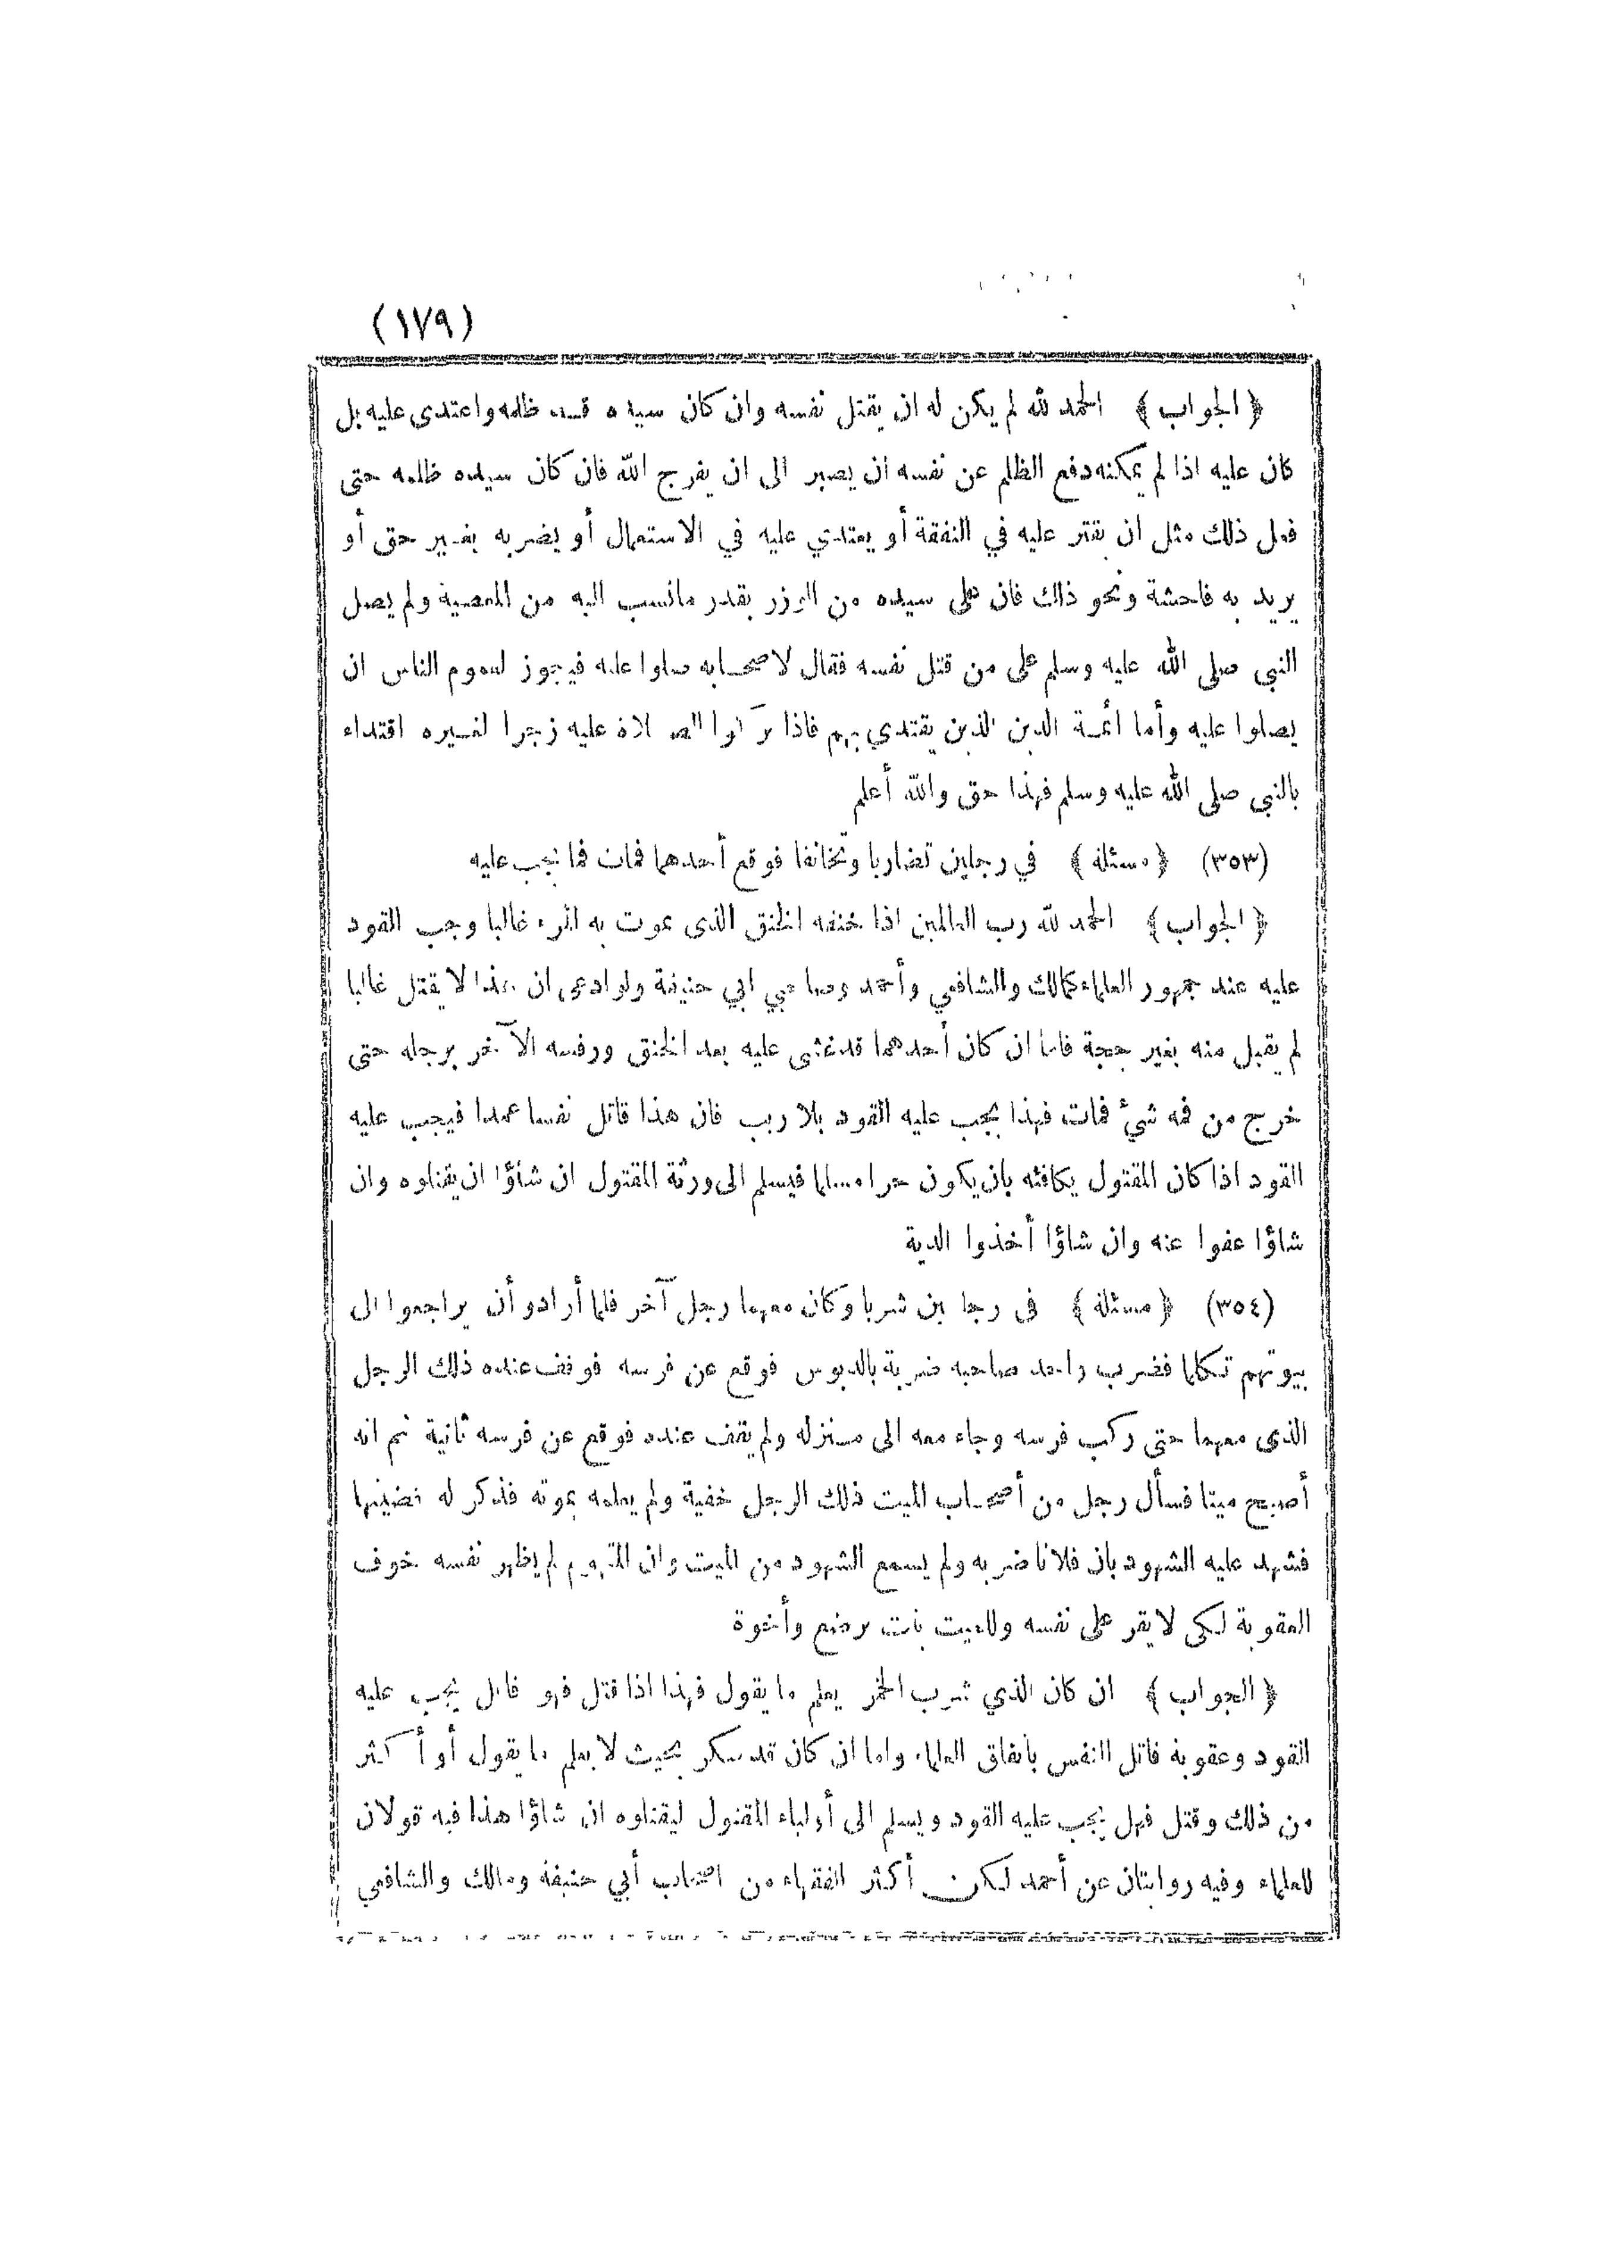 (١٧٩)
﴿ الجواب ﴾ الحمد لله لم يكن له ان يقتل نفسه وان كان سيده قد ظلمه واعتدى عليه بل
كان عليه اذا لم يمكنه دفع الظلم عن نفسه ان يصبر الى ان يفرج الله فان كان سيده ظلمه حتى
فعل ذلك مثل ان يقتر عليه في النفقة أو يعتدي عليه في الاستعمال أو يضربه بغير حق أو
يريد به فاحشة ونحو ذلك فان على سيده من الوزر بقدر مانسب اليه من المعصية ولم يصل
النبي صلى الله عليه وسلم على من قتل نفسه فقال لاصحابه صلوا عليه فيجوز لعموم الناس ان
يصلوا عليه وأما أئمة الدين الذين يقتدي بهم فاذا تركوا الصلاة عليه زجرا لغيره اقتداء
بالنبي صلى الله عليه وسلم فهذا حق والله أعلم
(٣٥٣) ﴿ مسئلة ﴾ في رجلين تضاربا وتخانقا فوقع أحدهما فمات فما يجب عليه
﴿ الجواب ﴾ الحمد لله رب العالمين اذا خنقه الخنق الذى يموت به المرء غالبا وجب القود
عليه عند جمهور العلماء كمالك والشافعي وأحمد وصاحبي ابي حنيفة ولو ادعى ان هذا لا يقتل غالبا
لم يقبل منه بغير حجة فاما ان كان أحدهما قد غشى عليه بعد الخنق ورفسه الآخر برجله حتى
خرج من فمه شيئ فمات فهذا يجب عليه القود بلا ريب فان هذا قاتل نفسا عمدا فيجب عليه
القود اذا كان المقتول يكافئه بان يكون حرا مسلما فيسلم الى ورثة المقتول ان شاؤا ان يقتلوه وان
شاؤا عفوا عنه وان شاؤا أخذوا الدية
(٣٥٤) ﴿ مسئلة ﴾ فى رجلين شربا وكان معهما رجل آخر فلما أرادو أن يراجعوا الى
بيوتهم تكلما فضرب واحد صاحبه ضربة بالدبوس فوقع عن فرسه فوقف عنده ذلك الرجل
الذى معهما حتى ركب فرسه وجاء معه الى منزله ولم يقف عنده فوقع عن فرسه ثانية ثم انه
أصبح ميتا فسأل رجل من أصحاب الميت ذلك الرجل خفية ولم يعلمه بموته فذكر له قضيتهما
فشهد عليه الشهود بان فلانا ضربه ولم يسمع الشهود من الميت وان المتهوم لم يظهر نفسه خوف
العقوبة لكى لا يقر على نفسه وللميت بنت ترضع وأخوة
﴿ الجواب ﴾ ان كان الذي شرب الخمر يعلم ما يقول فهذا اذا قتل فهو قاتل يجب عليه
القود وعقوبة قاتل النفس باتفاق العلماء واما ان كان قد سكر بحيث لا يعلم ما يقول أو أكثر
من ذلك وقتل فهل يجب عليه القود ويسلم الى أولياء المقتول ليقتلوه ان شاؤا هذا فيه قولان
للعلماء وفيه روايتان عن أحمد لكن أكثر الفقهاء من اصحاب أبي حنيفة ومالك والشافعي